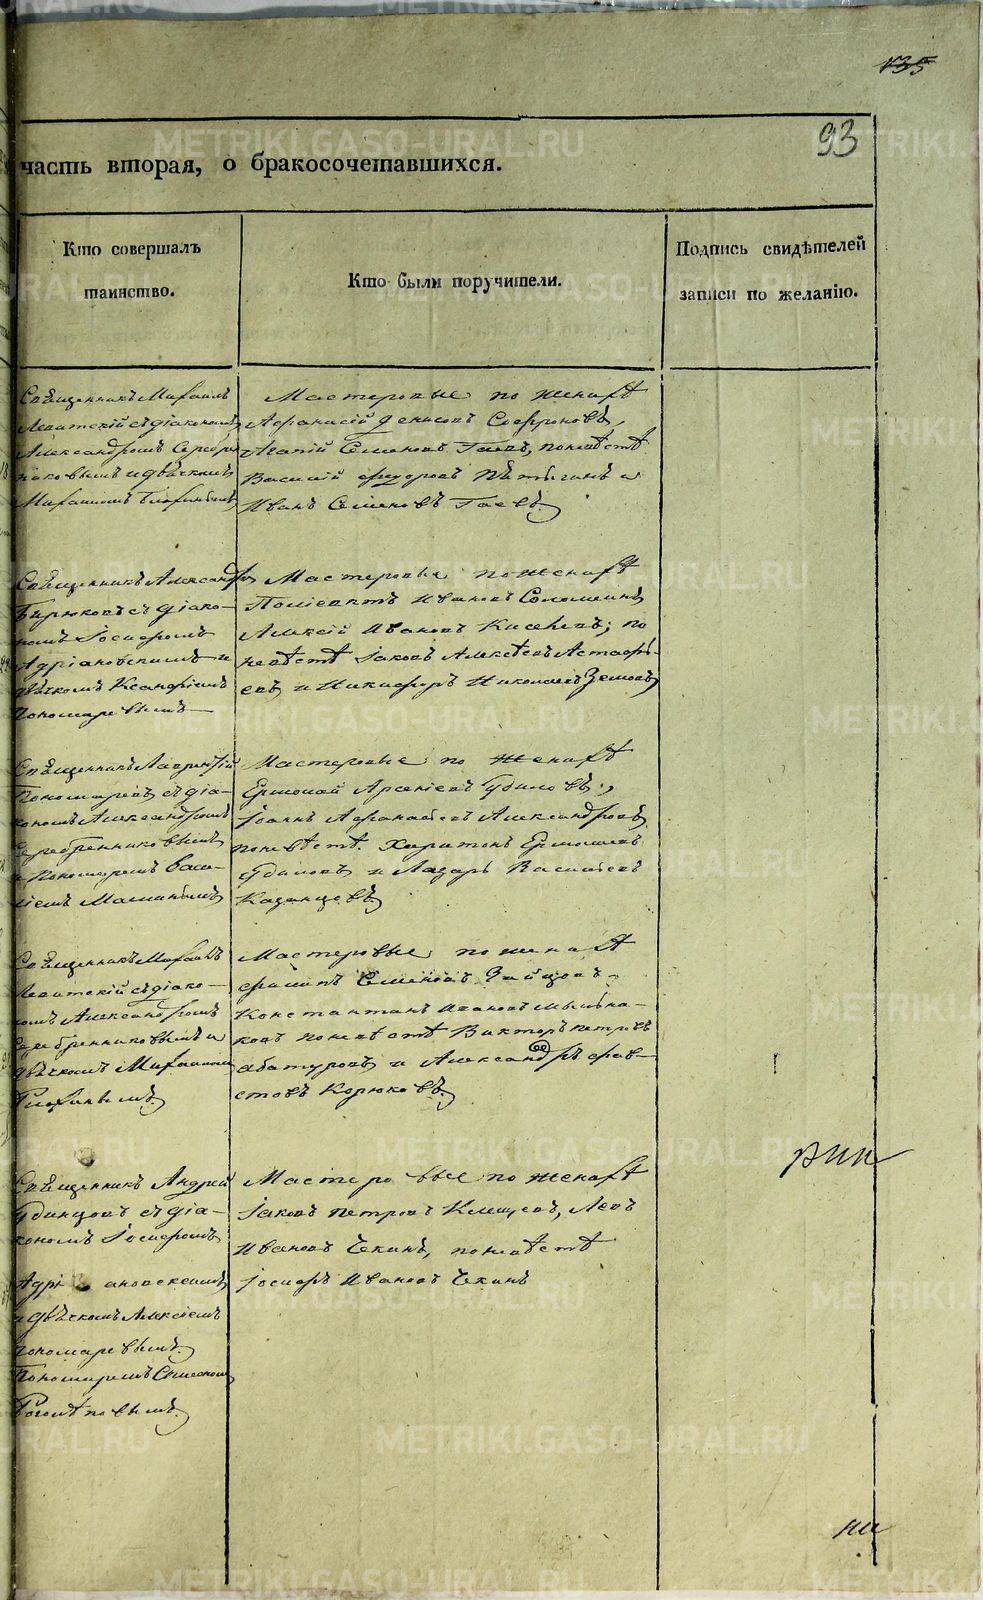 135
93
часть вторая, о бракосочетавшихся.
Кто совершалъ
таинство.
Кто были поручители.
Подпись свидѣтелей
записи по желанію.
Священникъ Михаилъ
Левитскій съ діакономъ
Александромъ Серебрен
никовымъ и дьячкомъ
Михаиломъ
Мастеровые по женихѣ
Афанасій Денисовъ Софроновъ,
Агапій Семеновъ Гаевъ, по невѣстѣ
Василій Федоровъ и
Иванъ Семеновъ Гаевъ.
Священникъ Александръ
Бирюковъ съ діако-
номъ Іосифомъ
Адріановскимъ и
дьячкомъ Ксенофонтомъ
Пономаревымъ
Мастеровые по женихѣ
Ивановъ
Алексій Ивановъ Киселевъ; по
невѣстѣ Іаковъ Алексѣевъ Астафь-
евъ и Никифоръ Николаевъ Земовъ
Священникъ Лаврентій
Пономаревъ съ діа-
кономъ Александромъ
Серебренниковымъ
и Пономаремъ Васи-
ліемъ
Мастеровые по женихѣ
Ермолай Арсеніевъ Удиловъ,
Іоаннъ Афанасьевъ Александровъ,
по невѣстѣ Харитонъ Ермолаевъ
Удиловъ и Лазарь Васильевъ
Казанцевъ.
Священникъ Михаилъ
Левитскій съ діако-
номъ Александромъ
Серебренниковымъ и
дьячкомъ Михаиломъ
Мастеровые по женихѣ
Филипъ Семеновъ Зайцовъ,
Константинъ Ивановъ
по невѣстѣ Викторъ Петровъ
Абатуровъ и Александръ Фав-
стовъ Корюковъ.
Священникъ Андрей
Удинцовъ съ діа-
кономъ Іосифомъ
Адріановскимъ
и дьячкомъ Алексіемъ
Пономаревымъ.
Пономаремъ
Мастеровые по женихѣ
Іаковъ Петровъ Клещевъ, Левъ
Ивановъ Чекинъ, по невѣстѣ
Іосифъ Ивановъ Чекинъ
METRIKI.GASO-URAL.RU